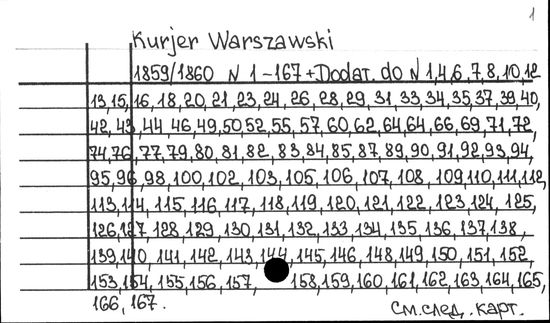 1
Kurjer Warszawski
1859/1860 N 1-167 + Dodat. do N 1,4,6,7,8,10,12
13,15,16,18,20,21,23,24,26,28,29,31,33,34,35,37,39,40,
42,43,44,46,49,50,52,55,57,60,62,64,64,66,69,71,72,
74,76,77,79,80,81,82,83,84,85,87,89,90,91,92,93,94,
95,96,98,100,102,103,105,106,107,108,109,110,111,112,
113,114,115,116,117,118,119,120,121,122,123,124,125,
126,127,128,129,130,131,132,133,134,135,136,137,138,
139,140,141,142,143,144,145,146,148,149,150,151,152,
153,154,155,156,157,158,159,160,161,162,163,164,165,
166,167.
См.след. карт.